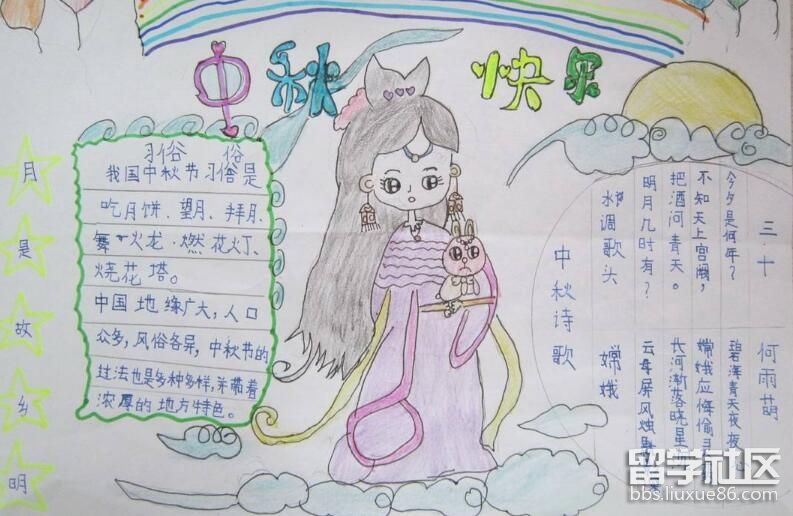 中秋快乐
月是故乡明
习俗 俗
我国中秋节习俗是
吃月饼、望月、拜月、
舞火龙、燃花灯、
烧花塔。
中国地缘广大，人口
众多，风俗各异，中秋节的
过法也是多种多样，并带着
浓厚的地方特色。
三.十
何雨萌
中秋诗歌
水调歌头
明月几时有？
把酒问青天。
不知天上宫阙，
今夕是何年？
嫦娥
云母屏风烛影
长河渐落晓星
嫦娥应悔偷
碧海青天夜夜心
留学社区
bbs.liuxue86.com